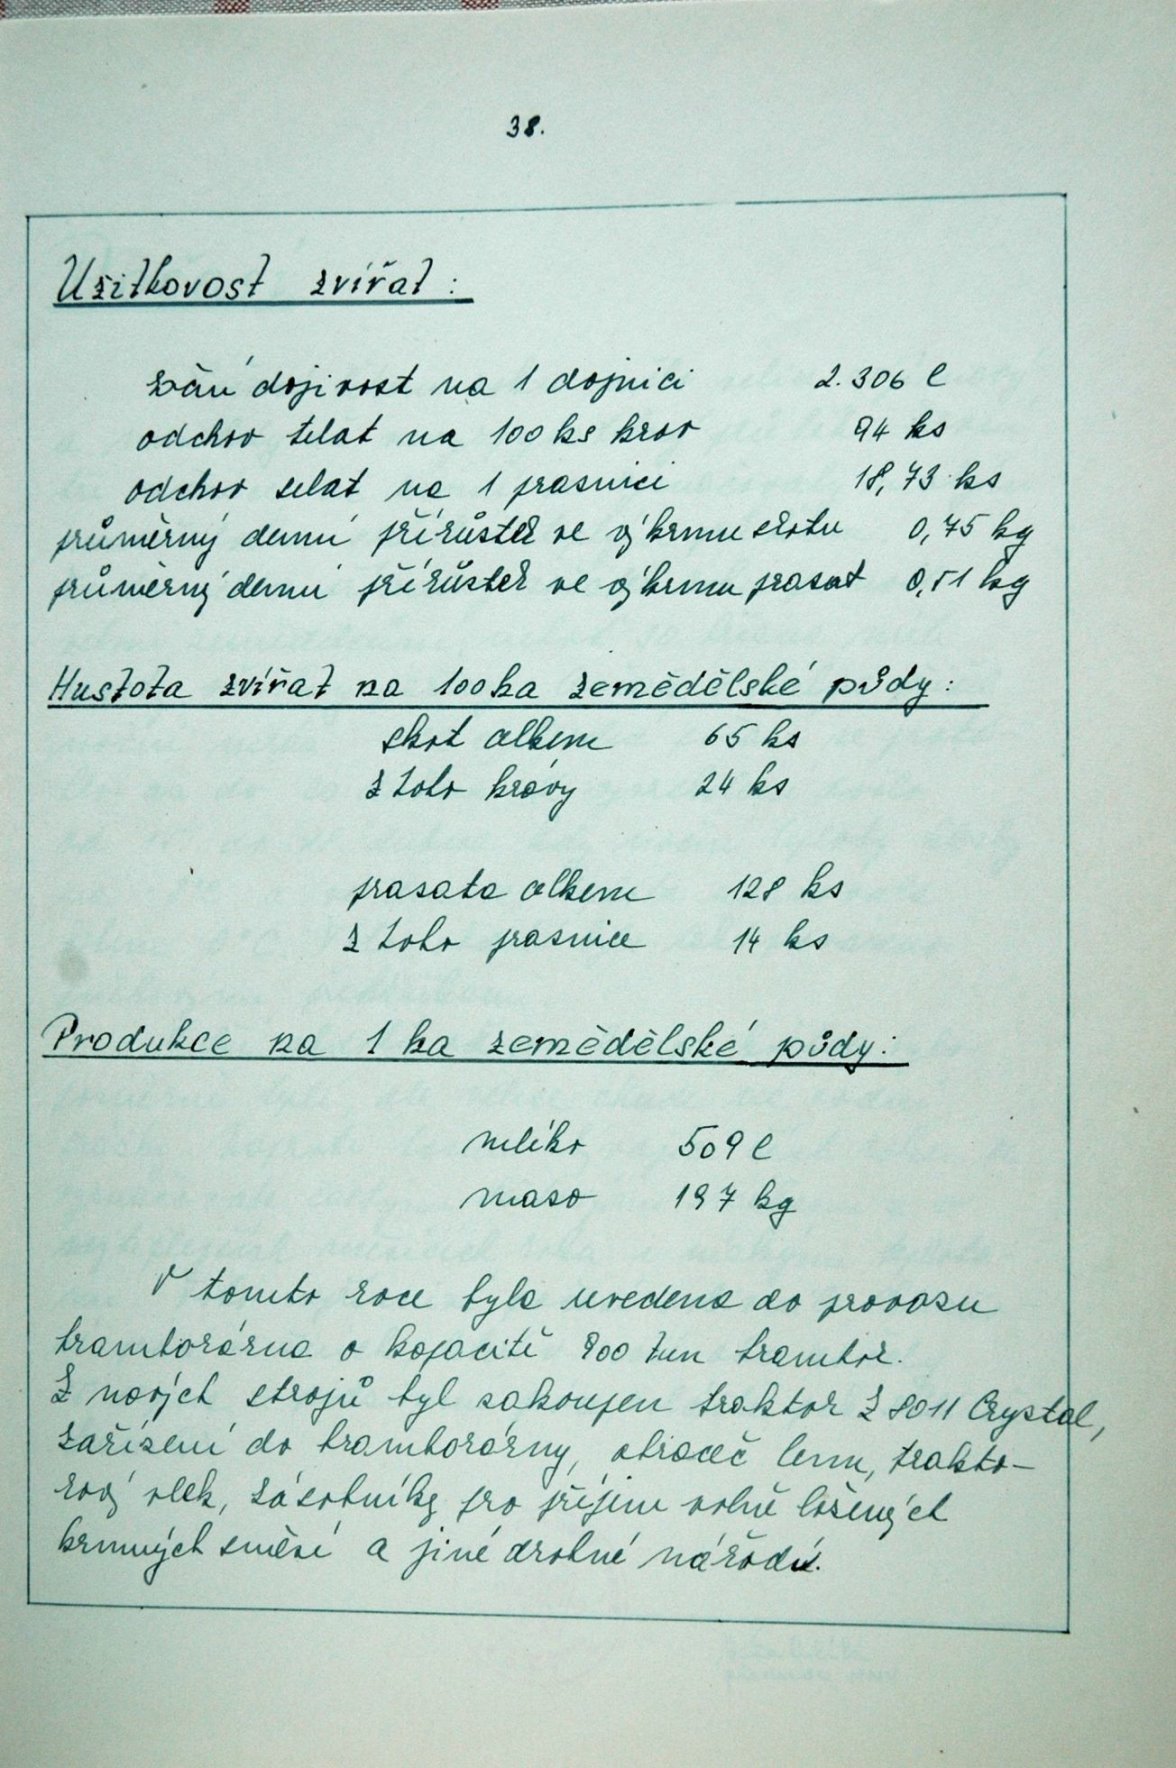 38.
Užitkovost zvířat :
roční dojivost na 1 dojnici 2.306 l
odchov telat na 100 ks krav 94 ks
odchov selat na 1 prasnici 18,73 ks
průměrný denní přírůstek ve výkrmu skotu 0,75 kg
průměrný denní přírůstek ve výkrmu prasat 0,51 kg
Hustota zvířat na 100 ha zemědělské půdy :
skot celkem 65 ks
z toho krávy 24 ks
prasata celkem 128 ks
z toho prasnice 14 ks
Produkce na 1 ha zemědělské půdy :
mléko 509 l
maso 197 kg
V tomto roce byla uvedena do provozu
bramborárna o kapacitě 800 tun brambor.
Z nových strojů byl zakoupen traktor Z 8011 Crystal,
zařízení do bramborárny, obraceč lenu, trakto-
rový vlek, zásobníky pro příjem volně ložených
krmných směsí a jiné drobné nářadí.